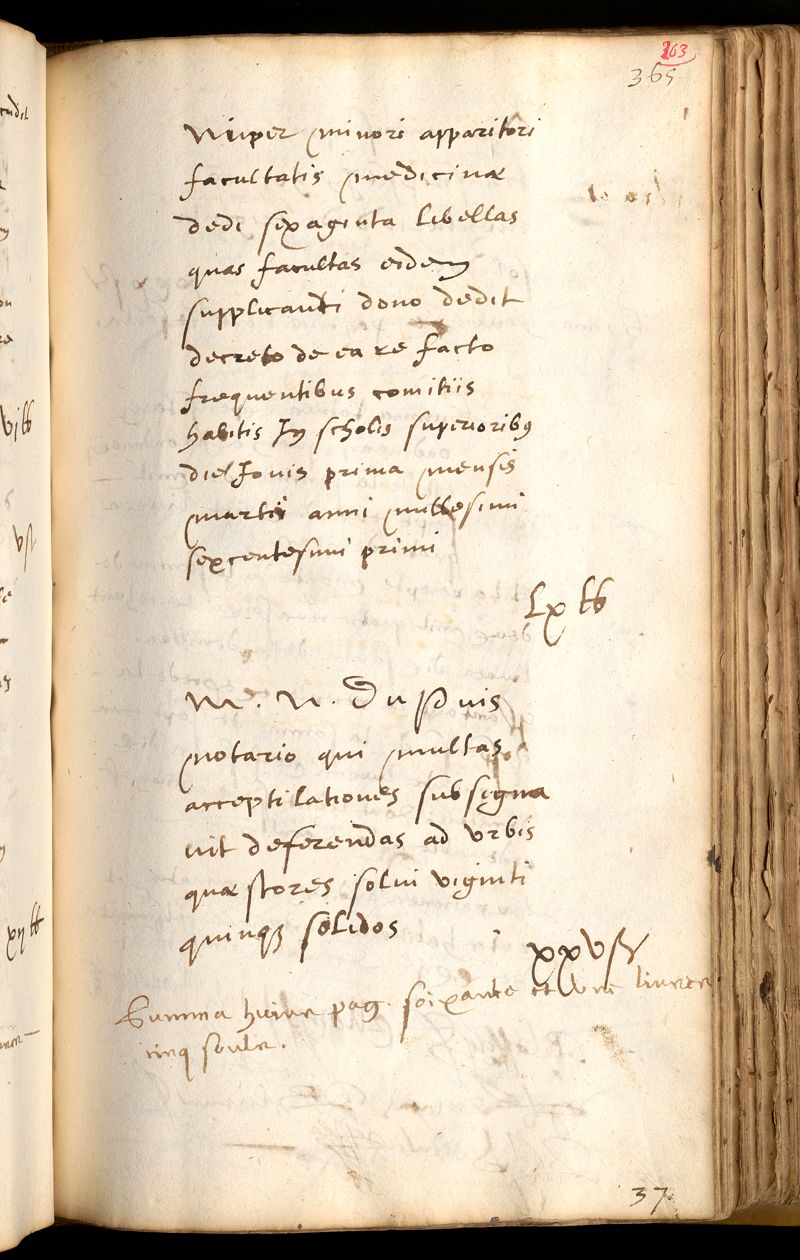 363
365
Nuper minori apparitori
facultatis medicinæ
dedi sexaginta libellas
quas facultas eidem
supplicanti dono dedit
decreto de ea re facto
frequentibus comitiis
habitis In scholis superioribus
die Jovis prima mensis
martii anni millesimi
sexcentesimi primi
lx lb
M. N. Du Puis
notario qui multas
acceptilationes subsigna
vit deferendas ad urbis
quæstores solui viginti
quinque solidos
xxv s
Summa huius pag. soixante et une livres
cinq soulz.
37